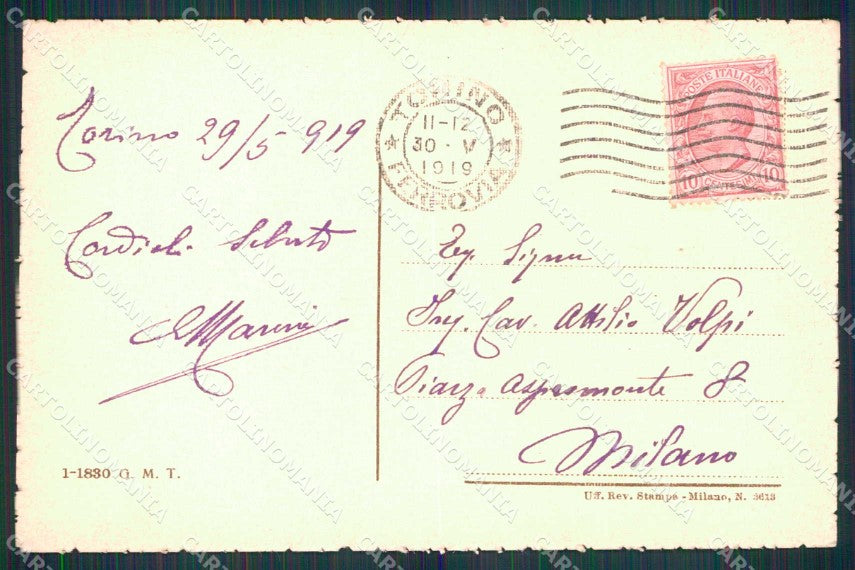 Torino 29/5 919
Cordiali Saluti
TORINO
11-12
30 · V
1919
FERROVIA
POSTE ITALIANE
10 10
Eg. Signor
Ing. Cav. Attilio Volpi
Piazza Aspromonte 8
Milano
1-1830 G. M. T.
Uff. Rev. Stampe - Milano, N. 3613
CARTOLINOMANIA